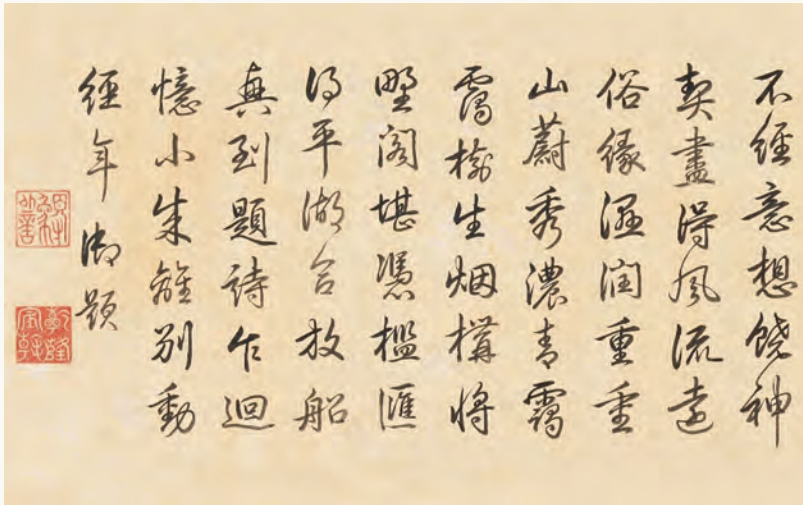 不經意想饒神
契盡得風流遠
俗緣濕潤重重
山蔚秀濃青靄
靄樹生烟構將
野閣堪憑檻匯
得平湖合放船
興到題詩乍迴
憶小朱離別動
經年御題
乾隆宸翰